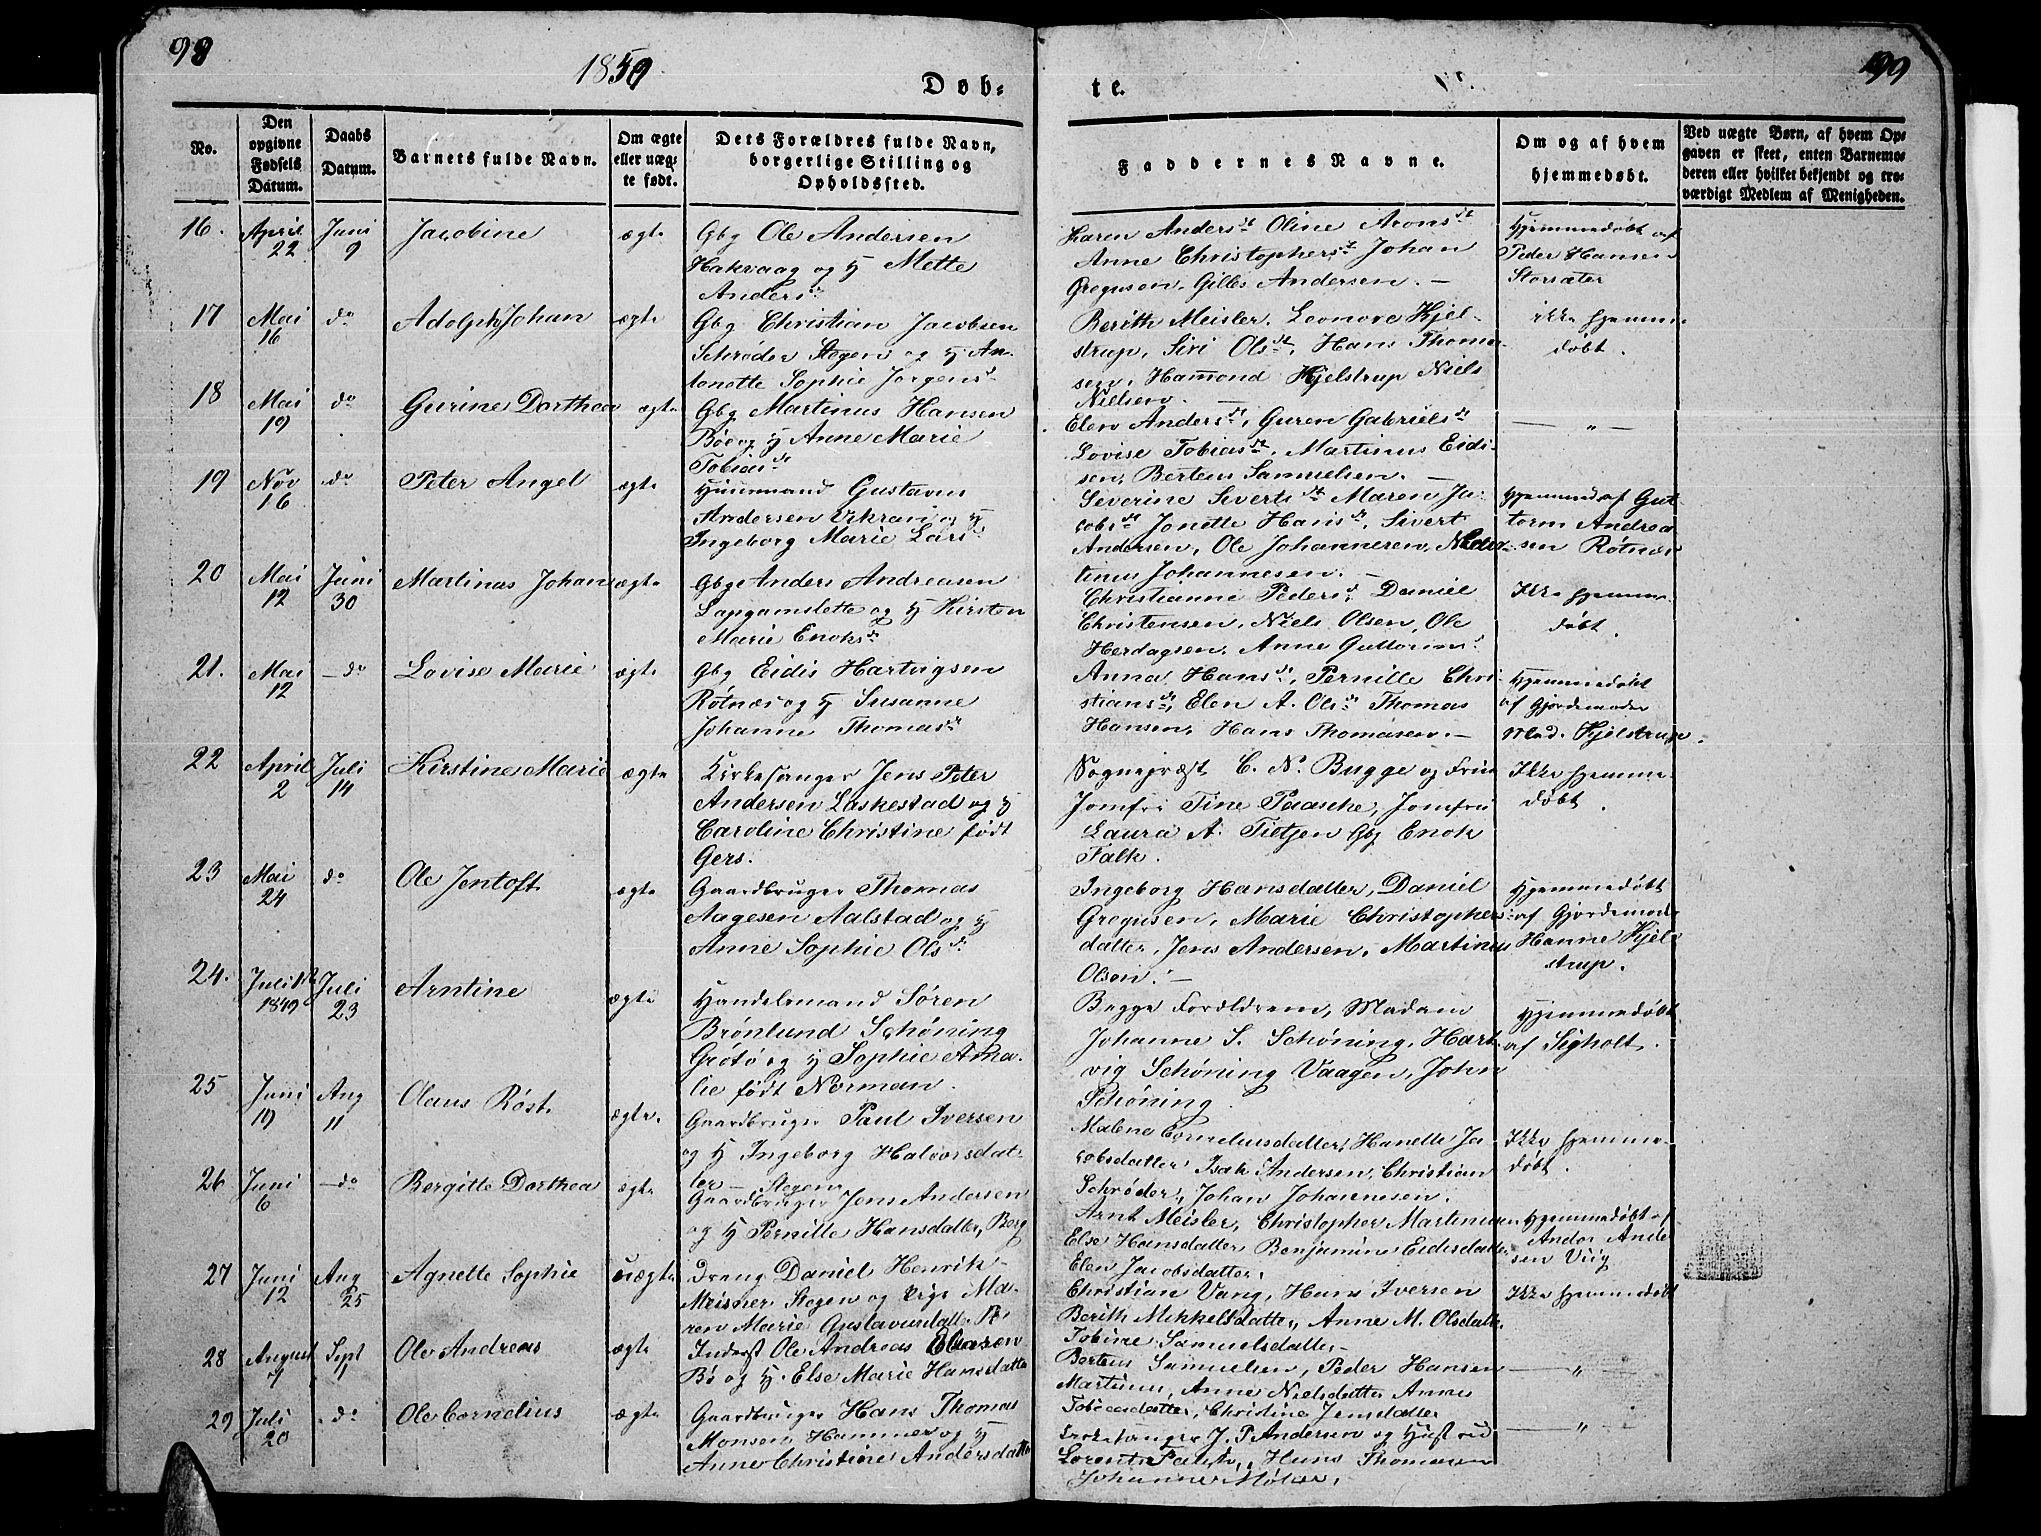 98
1850
Døb-
te.
99
No.
Den
opgivne
Fødsels
Datum.
Daabs
Datum.
Barnets fulde Navn.
Om ægte
eller uæg-
te født.
Dets Forældres fulde Navn,
borgerlige Stilling og
Opholdssted.
Faddernes Navne.
Om og af hvem
hjemmedøbt.
Ved uægte Børn, af hvem Op-
gaven er skeet, enten Barnemo-
deren eller hvilket bekjendt og tro-
værdigt Medlem af Menigheden.
16.
April
22
Juni
9
Jacobine
ægte
Gbg Ole Andersen
Hakvaag og H Mette
Andersdt
Karen Andersdt Oline Aronsdt
Anne Christophersdt Johan
Gregusen, Gilles Andersen. —
Hjemmedøbt af
Peder Hansen
Storsæter
17
Mai
16
do
Adolph Johan
ægte
Gbg Christian Jacobsen
Schrøder Stegen og H An-
tonette Sophie Jørgensdt
Berith Meisler, Leonora Kjel-
strup, Siri Olsdt, Hans Thoma-
sen, Hamond Kjelstrup Niels
Nielsen. —
ikke hjemme-
døbt.
18
Mai
19
do
Gurine Dorthea
ægte
Gbg Martinus Hansen
Bø og H Anne Marie
Tobiasdt
Elen Andersdt, Guren Gabrielsdt
Lovise Tobiasdt, Martinus Eidi-
sen, Berteus Samuelsen. —
— " —
19
Nov
16
do
Peter Angel
ægte
Huusmand Gustavus
Andersen og H
Ingeborg Marie Larsdt
Severine Sivertsdt Maren Ja-
cobsdt Jonette Hansdt, Sivert
Andersen, Ole Johannesen, Mar-
tinus Johannesen. —
Hjemmed af Gut-
torm Andrea-
sen Røtnæs
20
Mai
12
Juni
30
Martinus Johan
ægte
Gbg Anders Andreasen
Lapgamslette og H Kirsten
Marie Enoksdt
Christianne Pedersd, Daniel
Christensen, Niels Olsen, Ole
Herdagsen, Anne Guttormsd
Ikke hjemme-
døbt.
21.
Mai
12
— do
Lovise Marie
ægte
Gbg Eidis Hartvigsen
Røtnæs og H Susanne
Johanne Thomasdt
Anna Hansdt, Pernille Chri-
stiansdt, Elen A. Olsdt Thomas
Hansen, Hans Thomasen. —
Hjemmedøbt
af Gjordemoder
Mad. Kjelstrup.
22
April
2
Juli
14
Kirstine Marie
ægte
Kirkesanger Jens Peter
Andersen Laskestad og H
Caroline Christine født
Gers.
Sognepræst C. N. Bugge og Frue
Jomfru Tine Paasche, Jomfru
Laura A. Tietjen Gbg Enok
Falk.
Ikke hjemme-
døbt.
23
Mai
24
do
Ole Jentoft
ægte
Gaardbruger Thomas
Aagesen Aalstad og H
Anne Sophie Olsdt
Ingeborg Hansdatter, Daniel
Gregusen, Marie Christophers-
datter, Jens Andersen, Martinus
Olsen. —
Hjemmedøbt
af Gjordemoder
Hanne Kjel-
strup.
24.
Juli
1849
Juli
23
Arntine
ægte
Handelsmand Søren
Brønlund Schøning
Grøtø og H Sophie Ama-
lie født Norman.
Begge Forældrene, Madam
Johanne S. Schøning, Hart-
vig Schøning Vaagen, John
Schøning.
Hjemmedøbt
af Sigholt.
25
Juni
19
Aug
11
Olaus Røst
ægte.
Gaardbruger Paul Iversen
og H Ingeborg Halvorsdat-
ter — Stegen
Malene Corneliusdatter, Hanette Ja-
cobsdatter Isak Andersen, Christian
Schrøder, Johan Johannesen.
Ikke hjemme-
døbt.
26
Juni
6
— do
Bergitte Dorthea
ægte
Gaardbruger Jens Andersen
og H Pernille Hansdatter, Berg
Arnt Meisler, Christopher Martinusen
Else Hansdatter Benjamine Eidisdatter
Elen Jacobsdatter.
Hjemmedøbt af
Andor Ande
sen Viig
27
Juni
12
Aug
25
Agnette Sophie
uægte
Dreng Daniel Henrik
Meisner Stegen og Pige Ma-
ren Marie Gustavusdatter
Christian Vang, Hans Iversen
Berith Mikkelsdatter, Anne M. Olsdatter
Tobine Samuelsdatter. —
Ikke hjemmedøbt
28
August
Sept
Ole Andreas
ægte
Inderst Ole Andreas
Bø og H. Else Marie Hansdatter
Berteus Samuelsen, Peder Hansen
Martinus, Anne Nielsdatter Anne
Tobiasdatter, Christine Jensdatter
— " —
29
Juli
20
do
Ole Cornelius
ægte
Gaardbruger Hans Thomas
Monsen Hammer og H
Anne Christine Andersdatter
Kirkesanger J. P. Andersen og Hustru
Lorents Falk, Hans Thomasen
Johanne
— " —